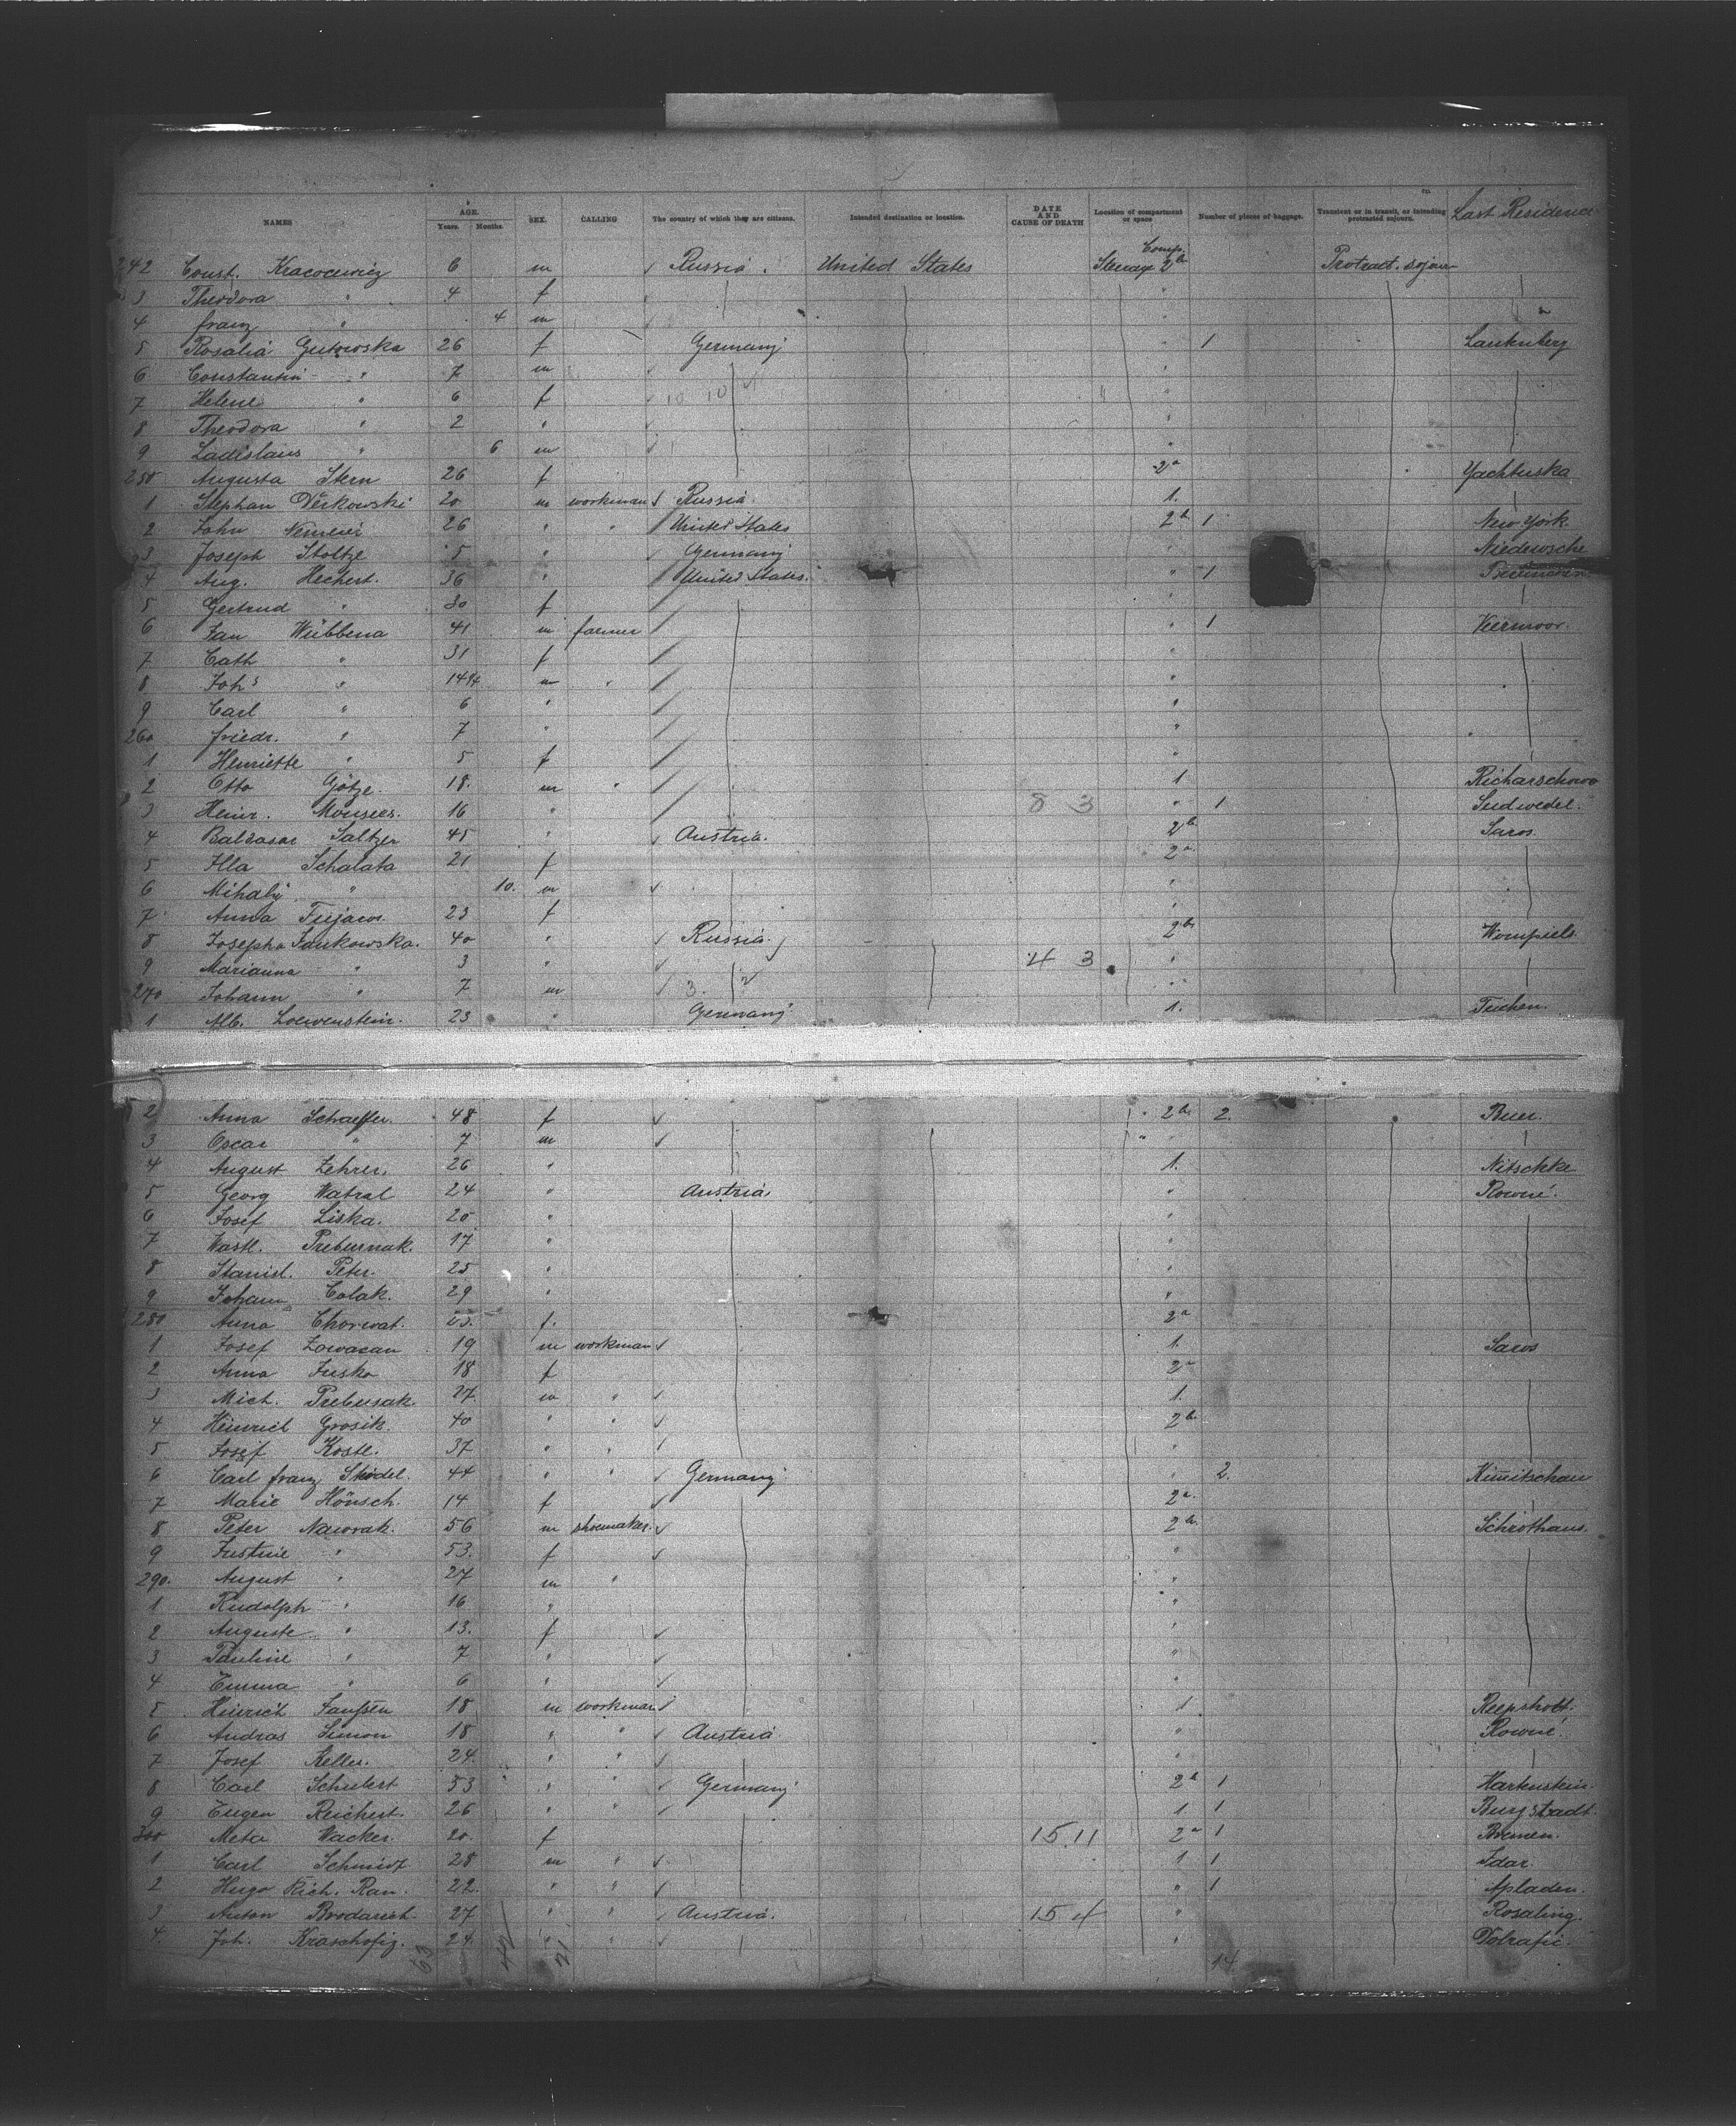 NAMES AGE. Years. Months. SEX. CALLING The country of which they are citizens. Intended destination or location. DATE AND CAUSE OF DEATH Location of compartment or space Number of pieces of baggage. Transient or in transit, or intending protracted sojourn. Last Residence
242 Const. 6 m Russia. United States Steerage Comp. 2b Protract. sojourn
3 Theodora " 4 f "
4 franz " 4 m "
5 Rosalia Gutowska 26 f Germany " 1 Lautenberg
6 Constantin " 7 m "
7 Helene " 6 f "
8 Theodora " 2 " "
9 Ladislaus " 6 m "
250 Augusta Stern 26 f 2a Yachtuska
1 Stephan 20 m workman Russia 1.
2 John 26 " " United States 2b 1 New York.
3 Joseph Stoltze 5 " Germany " Niederosche
4 Aug. Hechert. 36 " United States. " 1
5 Gertrud " 30 f "
6 Jan Wübbena 41 m farmer " 1 Veermoor.
7 Cath " 31 f "
8 Johs " 14 m " "
9 Carl " 6 " "
260 friedr. " 7 " "
1 Henriette " 5 f "
2 Otto Götze. 18. m " 1 Richarschowo
3 Heinr. Monsees. 16 " 8 3 " 1 Sudwedel.
4 Baldasar Saltzer 45 " Austria. 2b Saros.
5 Illa Schalata 21 f 2a
6 Mihaly " 10. m "
7 Anna 23 f "
8 Josepha Jankowska. 40 " Russia. 2b Wompiels
9 Marianna " 3 " 4 3 "
270 Johann " 7 m 3. "
1 Alb. Loewenstein. 23 " Germany 1. Tuchen.
2 Anna Schaeffer. 48 f 2b 2. Buer.
3 Oscar " 7 m "
4 August Zehrer. 26 " 1. Nitschke
5 Georg Watral 24 " Austria. " Rowne.
6 Josef Liska. 20 " "
7 Wasil. Preburnak. 17 "
8 Stanisl. Peter. 25 " "
9 Johann Colak. 29 " "
280 Anna Chorwat. f. 2a
1 Josef Zowacan 19 m workman 1. Saros
2 Anna Jusko 18 f 2a
3 Mich. Prebusak. 27. m " 1.
4 Heinrich Grosik. 40 " " 2b
5 Josef Kostl. 37 " " "
6 Carl franz Skodel. 44 " " Germany " 2. Kimitschau
7 Marie Hönsch. 14 f 2a.
8 Peter Nawrak. 56 m shoemaker. 2b. Schrothaus.
9 Justine " 53. f "
290. August " 27 m " "
1 Rudolph " 16 " "
2 Auguste " 13. f "
3 Pauline " 7 " "
4 Emma " 6 " "
5 Heinrich Janssen 18 m workman 1 Reepsholt.
6 Andras Simon 18 " " Austria " Rowne.
7 Josef Keller. 24. " " "
8 Carl Schubert 53 " " Germany 2b 1 Hartenstein.
9 Eugen Reichert. 26 " " 1 1 Burgstadt.
300 Meta Wacker. 20. f 15 11 2a 1 Bremen.
1 Carl Schmidt 28 m " 1 1 Idar.
2 Hugo Rich. Rau. 22. " " " 1 Apladen.
3 Anton Brodarich. 27 " " Austria. 15 4 " Rosaling.
4. Joh. Kraschofiz. 24. " " " Dolrafic.
63 42 21 14